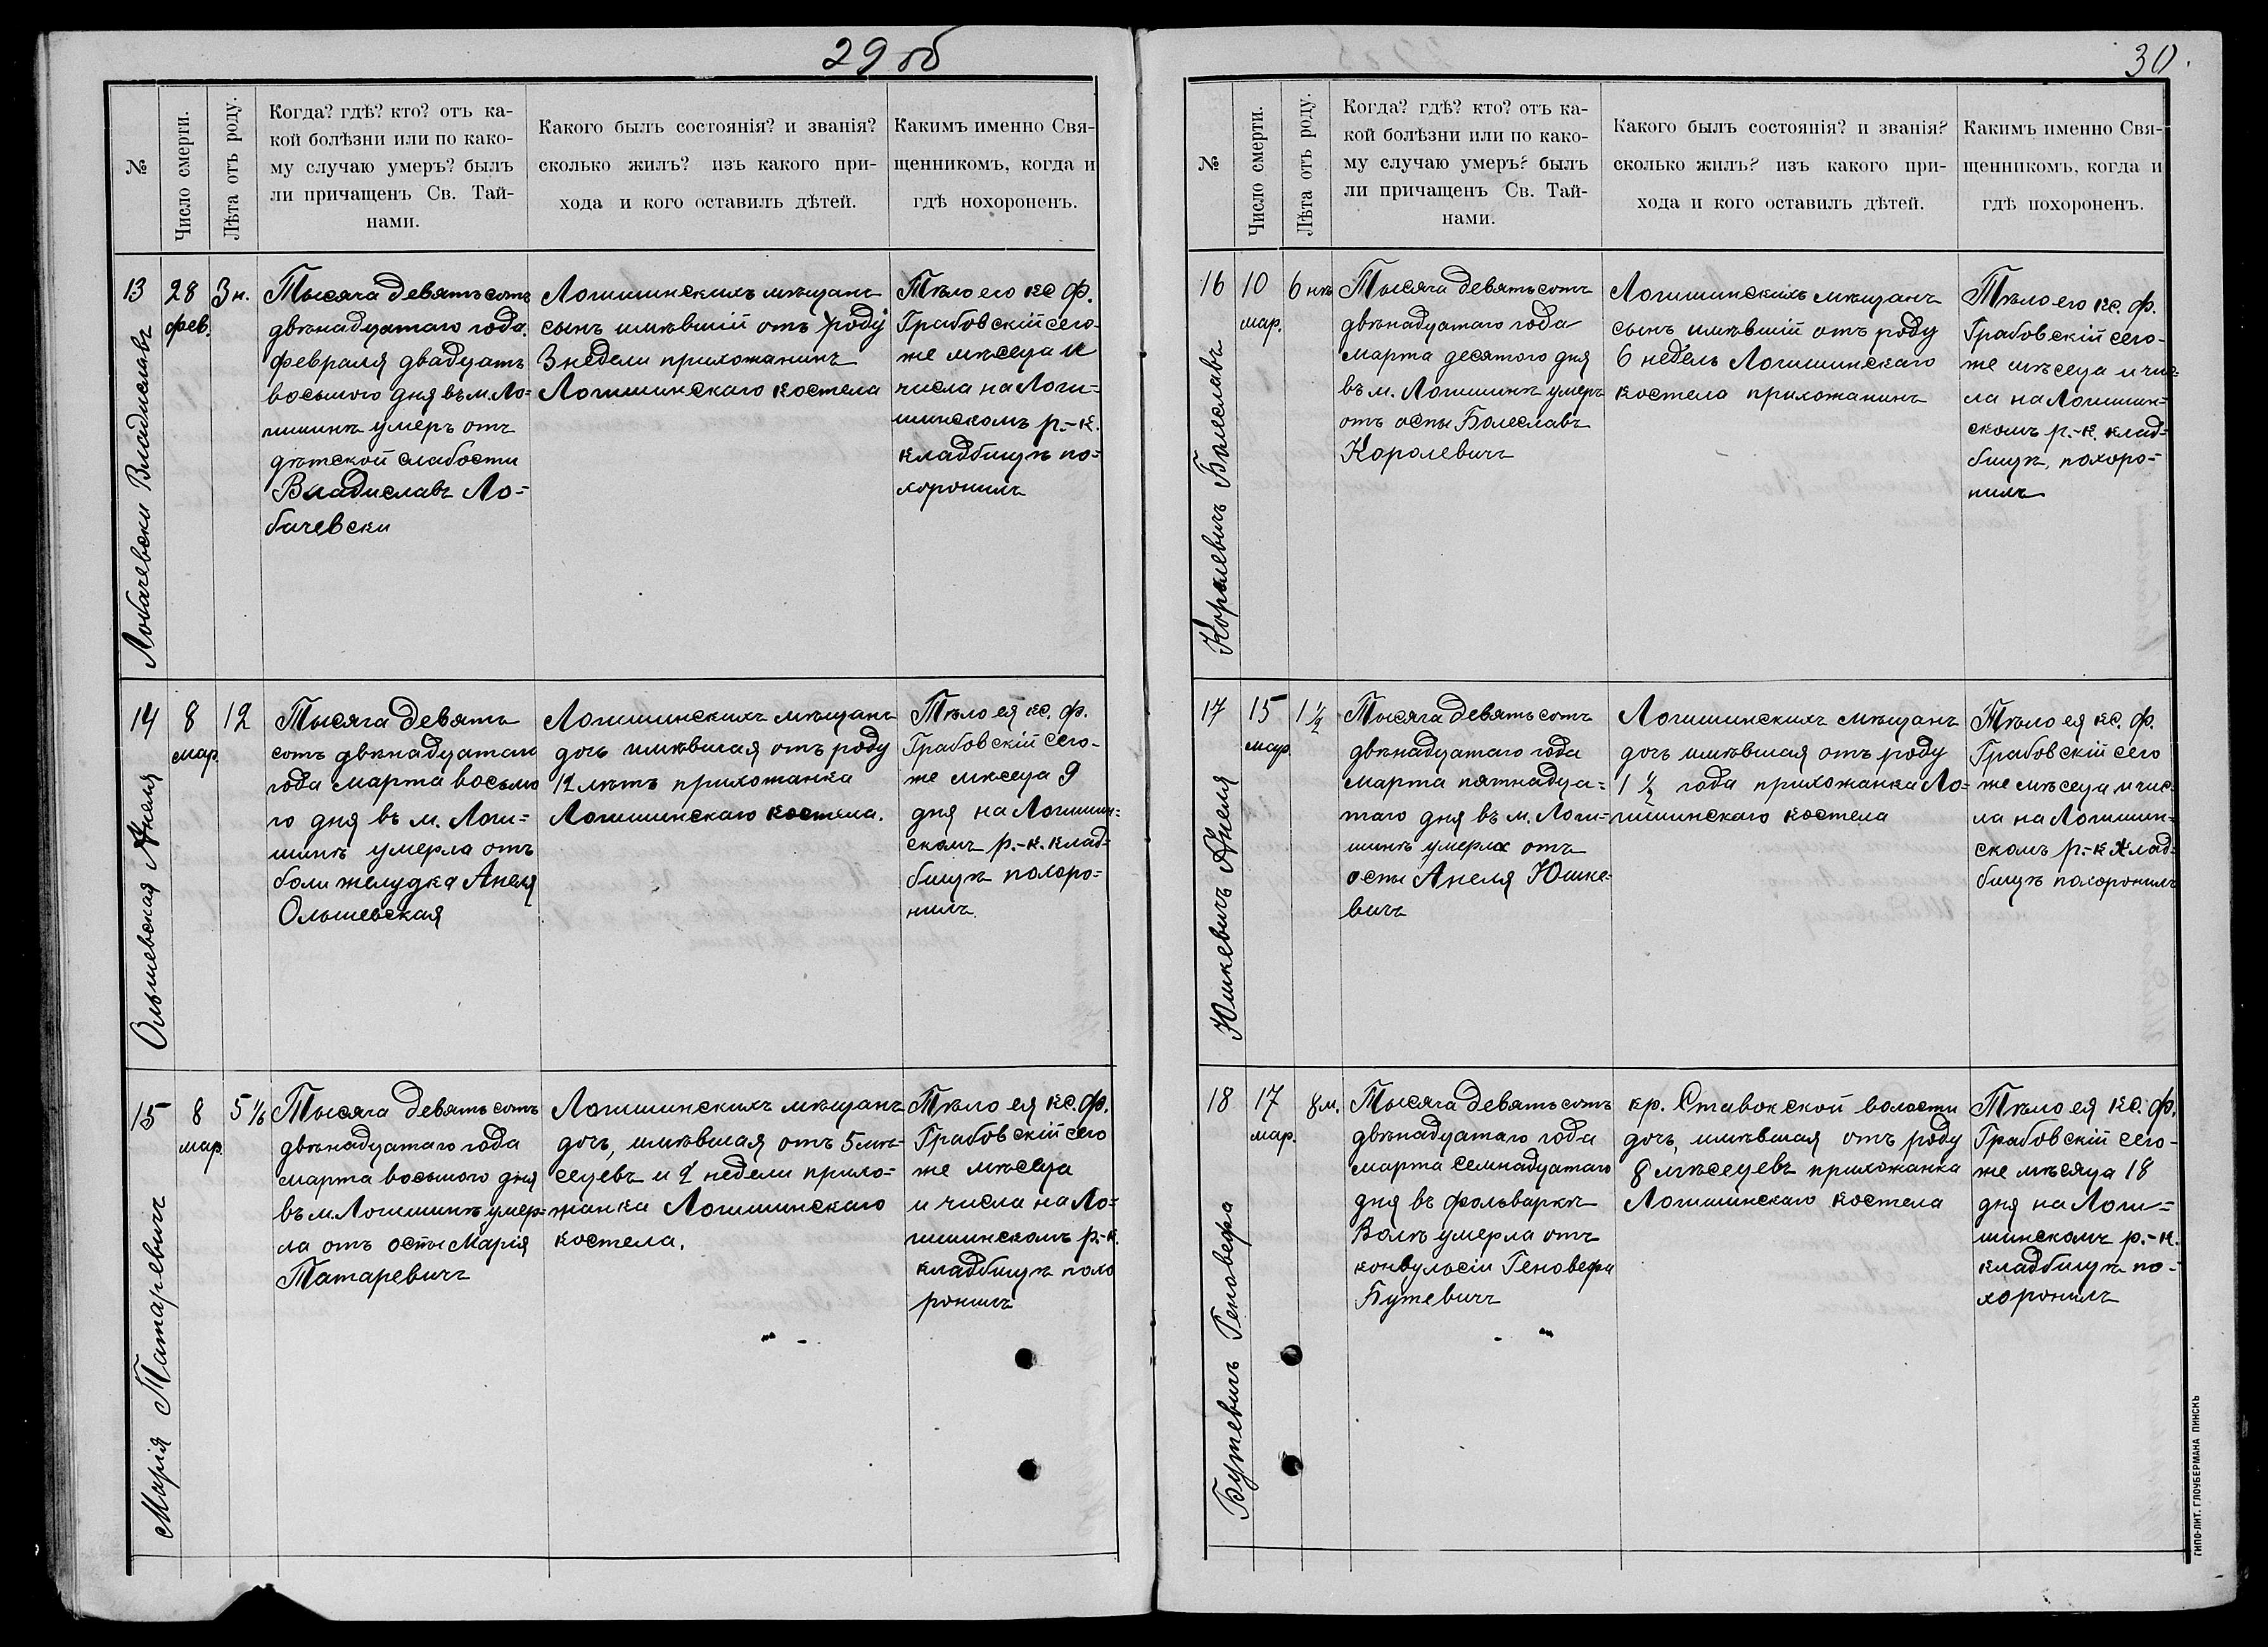 29 об
№
Число смерти.
Лѣта отъ роду.
Когда? гдѣ? кто? отъ ка-
кой болѣзни или по како-
му случаю умеръ? былъ
ли причащенъ Св. Тай-
нами.
Какого былъ состоянія? и званія?
сколько жилъ? изъ какого при-
хода и кого оставилъ дѣтей.
Какимъ именно Свя-
щенникомъ, когда и
гдѣ нохороненъ.
13
Лобачевски Владиславъ
28
фев.
3 н.
Тысяча девятьсотъ
двѣнадцатаго года.
февраля двадцать
восьмого дня въ м. Ло=
гишинѣ умеръ отъ
дѣтской слабости
Владиславъ Ло=
бачевски
Логишинскихъ мѣщанъ
сынъ имѣвшій отъ роду
3 недели прихожанинъ
Логишинскаго костела
Тѣло его кс. Ф.
Грабовскій сего-
же мѣсеца и
числа на Логи=
шинскомъ р.-к.
кладбищѣ по=
хоронилъ
14
Ольшевская Анеля
8
мар.
12
Тысяча девять
сотъ двѣнадцатаго
года марта восьмо
го дня въ м. Логи=
шинѣ умерла отъ
боли желудка Анеля
Ольшевская
Логишинскихъ мѣщанъ
дочь имѣвшая отъ роду
12 лѣтъ прихожанка
Логишинскаго костела.
Тѣло ея кс. Ф.
Грабовскій сего-
же мѣсеца 9
дня на Логишин=
скомъ р.-к. клад=
бищѣ похоро=
нилъ.
15
Марія Татаревичъ
8
мар.
5 ½
Тысяча девятьсотъ
двѣнадцатаго года
марта восьмого дня
въ м. Логишинѣ умер=
ла отъ оспы Марія
Татаревичъ
Логишинскихъ мѣщанъ
дочь, имѣвшая отъ 5 мѣ=
сецевъ и 2 недели прихо=
жанка Логишинскаго
костела.
Тѣло ея кс. Ф.
Грабовскій сего
же мѣсеца
и числа на Ло=
гишинскомъ р.-к.
кладбищѣ похо
ронилъ
30.
№
Число смерти.
Лѣта отъ роду.
Когда? гдѣ? кто? отъ ка-
кой болѣзни или по како-
му случаю умеръ? былъ
ли причащенъ Св. Тай-
нами.
Какого былъ состоянія? и званія?
сколько жилъ? изъ какого при-
хода и кого оставилъ дѣтей.
Какимъ именно Свя-
щенникомъ, когда и
гдѣ похороненъ.
16
Королевичъ Болеславъ
10
мар.
6
Тысяча девятьсотъ
двѣнадцатаго года
марта десятого дня
въ м. Логишинѣ умеръ
отъ оспы Болеславъ
Королевичъ
Логишинскихъ мѣщанъ
сынъ имѣвшій отъ роду
6 недѣль Логишинскаго
костела прихожанинъ
Тѣло его кс. Ф.
Грабовскій сего-
же мѣсеца и чис=
ла на Логишин=
скомъ р.-к. клад=
бищѣ, похоро=
нилъ
17
Юшкевичъ Анеля
15
мар.
1 ½
Тысяча девятьсотъ
двѣнадцатаго года
марта пятнадца=
таго дня въ м. Логи=
шинѣ умерла отъ
оспы Анеля Юшке=
вичъ
Логишинскихъ мѣщанъ
дочь имѣвшая отъ роду
1 ½ года прихожанка Ло=
гишинскаго костела
Тѣло ея кс. Ф.
Грабовскій сего
же мѣсеца и чис=
ла на Логишин=
скомъ р.-к клад=
бищѣ похоронилъ
18
Бутевичъ Геновефа
17
мар.
8 м.
Тысяча девятьсотъ
двѣнадцатаго года
марта семнадцатаго
дня въ фольваркѣ
Волѣ умерла отъ
конвульсіи Геновефа
Бутевичъ
кр. Ставокской волости
дочь, имѣвшая отъ роду
8 мѣсецевъ прихожанка
Логишинскаго костела
Тѣло ея кс. Ф.
Грабовскій сего-
же мѣсяца 18
дня на Логи=
шинскомъ р.-к.
кладбищѣ по=
хоронилъ
ТИПО-ЛИТ. ГЛОУБЕРМАНА ПИНСКЬ